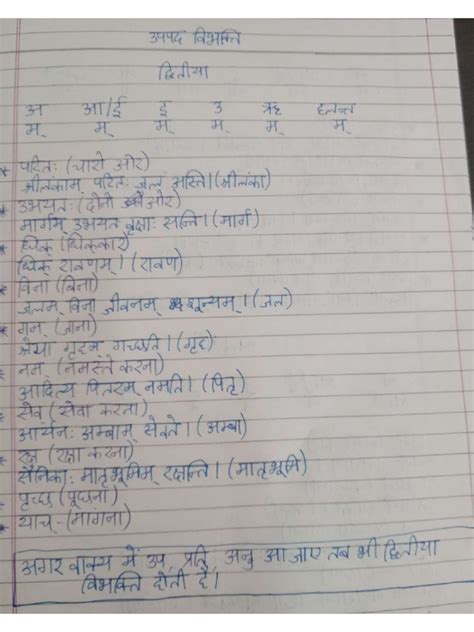 उपपद विभक्ति
द्वितीया
अ आ/ई इ उ ऋ हलन्त
म् म् म् म् म् म्
* परितः (चारो ओर)
श्रीलंकाम् परितः जलं अस्ति। (श्रीलंका)
* उभयतः (दोनो ओर)
मार्गम् उभयत वृक्षाः सन्ति। (मार्ग)
* धिक् (धिक्कार)
धिक् रावणम्। (रावण)
* विना (बिना)
जलम् विना जीवनम् शून्यम्। (जल)
* गम् (जाना)
श्रेया गृहम् गच्छति। (गृह)
* नम् (नमस्ते करना)
आदित्य पितरम् नमति। (पितृ)
* सेव (सेवा करता)
आर्यनः अम्बाम् सेवते। (अम्बा)
* रक्ष (रक्षा करना)
सैनिकाः मातृभूमिम् रक्षन्ति। (मातृभूमि)
* पृच्छ (पूछना)
* याच् - (मांगना)
अगर वाक्य में उप, प्रति, अनु आ जाए तब भी द्वितीया
विभक्ति होती है।